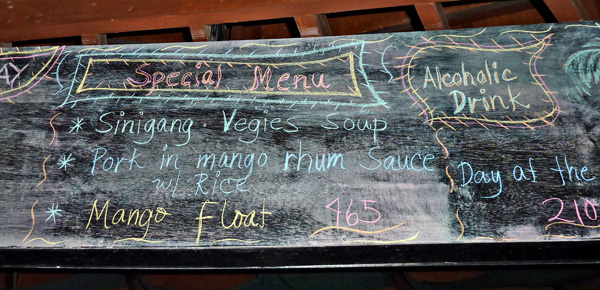 AY
Special Menu
* Sinigang Vegies Soup
* Pork in mango rhum Sauce
w/ Rice
* Mango Float 465
Alcoholic
Drink
Day at the
210